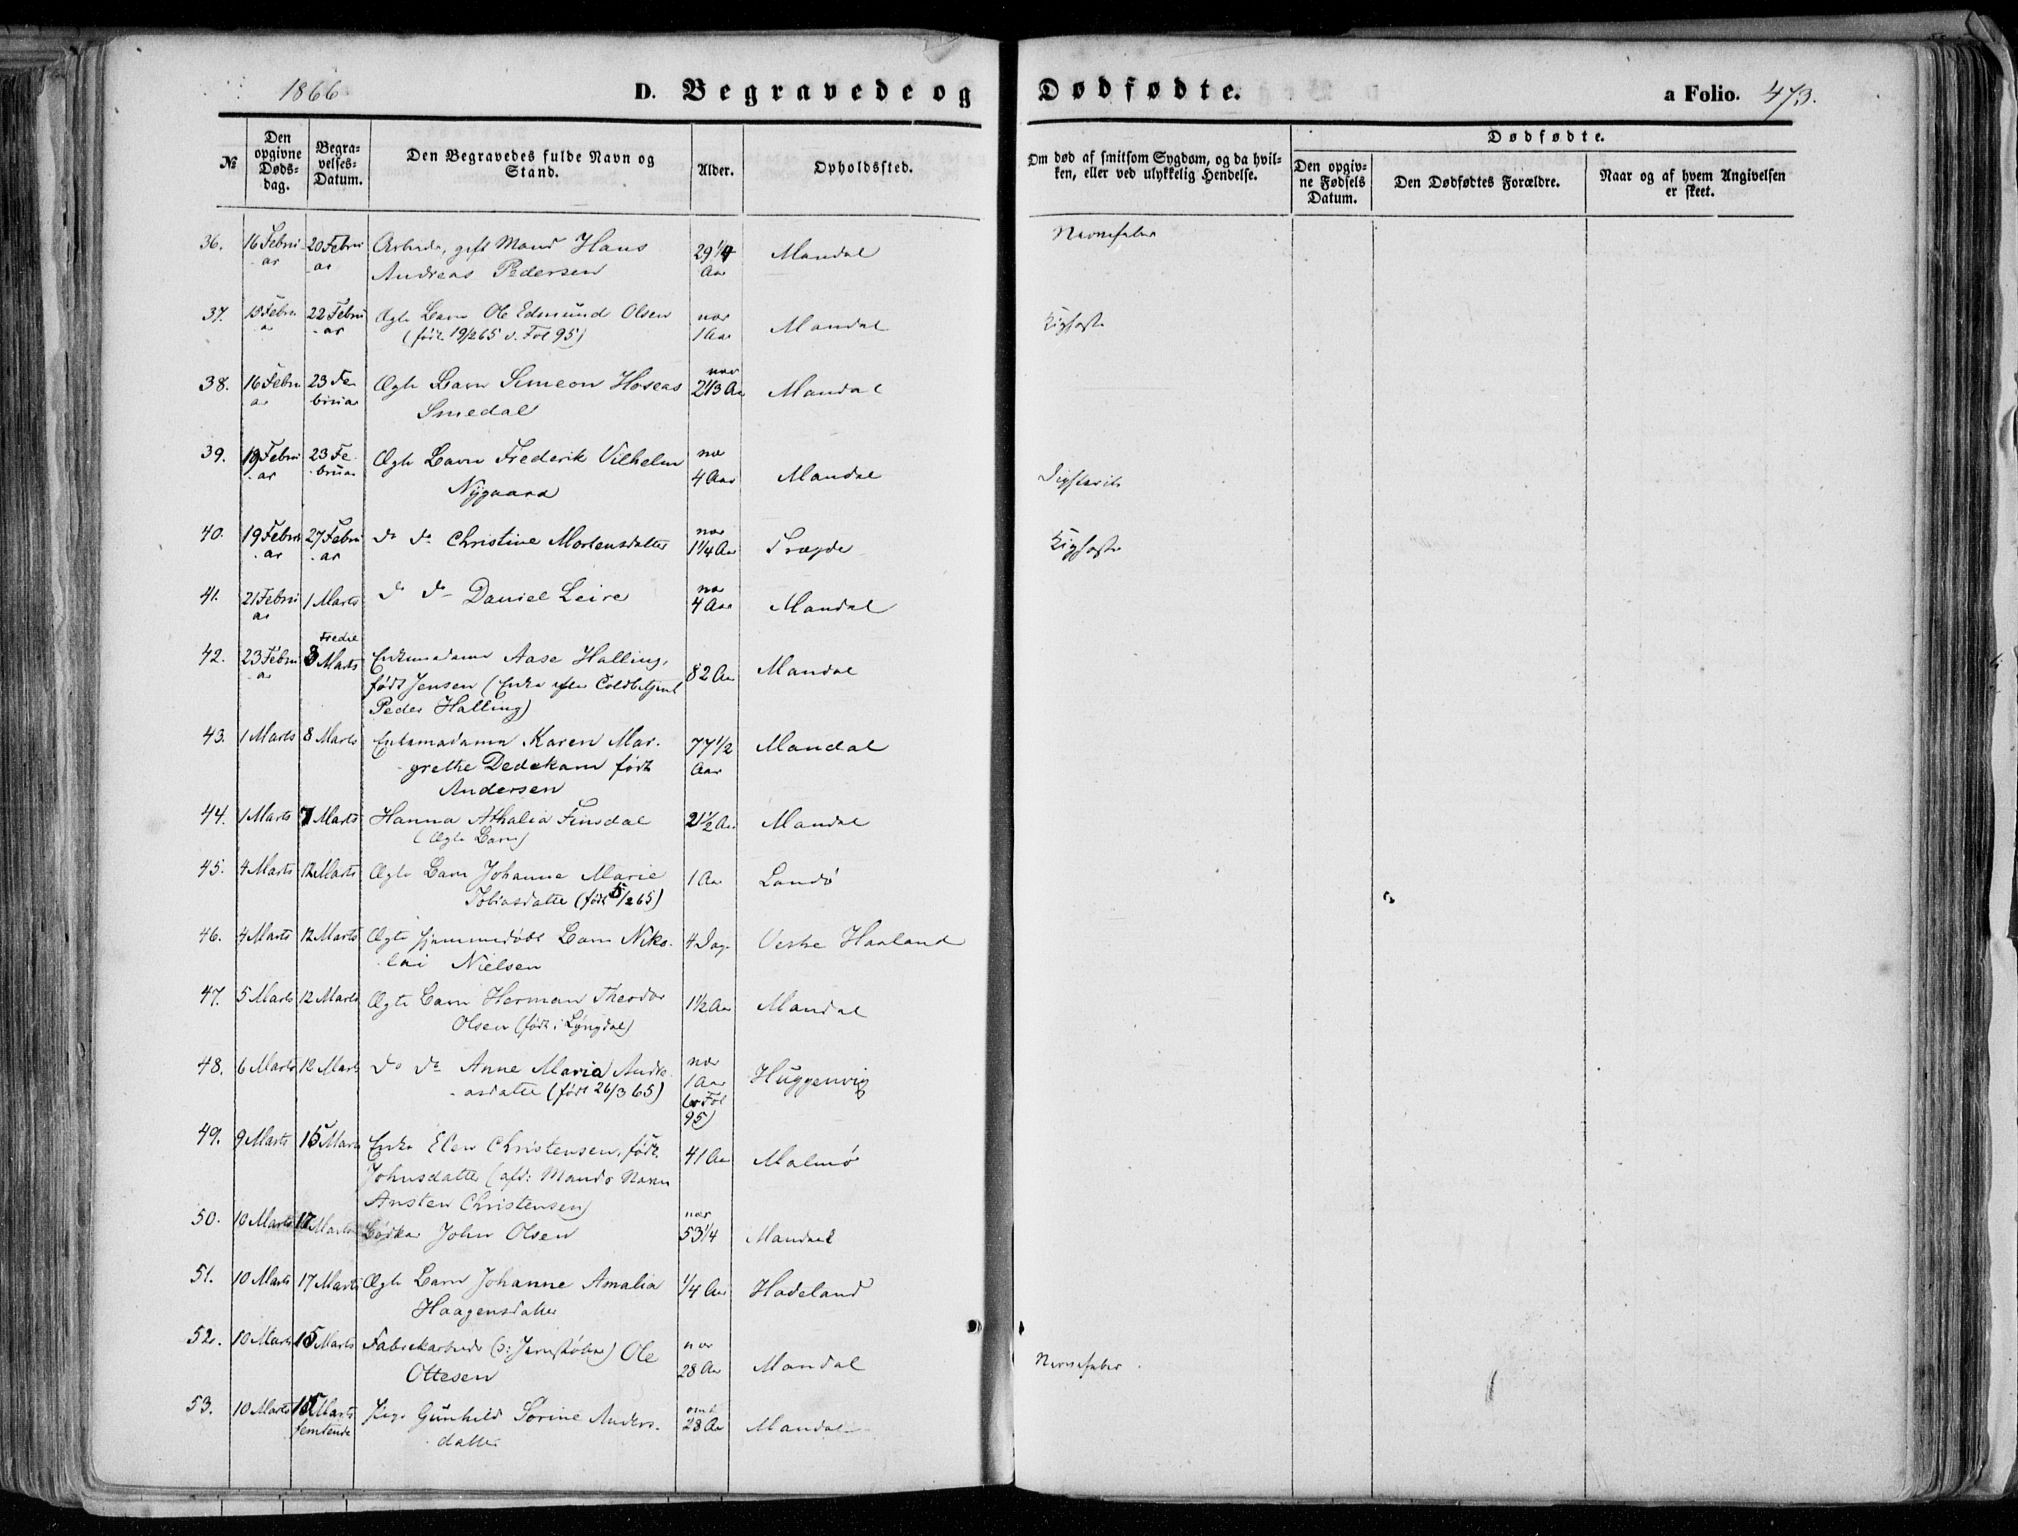 1866
D. Begravede og Dødfødte.
a Folio. 473.
№
Den opgivne Døds-dag.
Begra-velses-Datum.
Den Begravedes fulde Navn og Stand.
Alder.
Opholdssted.
Om død af smitsom Sygdom, og da hvil-ken, eller ved ulykkelig Hendelse.
Dødfødte.
Den opgiv-ne Fødsels Datum.
Den Dødfødtes Forældre.
Naar og af hvem Angivelsen er skeet.
36. 16 Febru 20 Febru Arbeider, gift Mand Hans 29 1/4 Mandal Nervefeber
ar ar Andreas Pedersen Aar
37. 15 Febru 22 Febru Ægte Barn Ole Edmund Olsen nær Mandal Kighoste
a ar (født 19/2 65 v. Fol 95) 1 Aar
38. 16 Febru 23 Fe Ægte Barn Simeon Hoseas nær 2 1/3 Aa Mandal
ar bruar Smedal
39. 19 Febru 23 Fe Ægte Barn Frederik Vilhelm nær Mandal
ar bruar Nygaard 4 Aar
40. 19 Febru 27 Febru do do Christine Mortensdatter nær Trægde Kighoste
ar ar 1 1/4 Aar
41. 21 Febru 1 Marts do do Daniel Leire nær Mandal
ar 4 Aar
42. 23 Febru Tredie 3 Marts Enkemadame Aase Halling, 82 Aar Mandal
ar født Jensen (Enke efter Toldbetjent
Peder Halling)
43. 1 Marts 8 Marts Enkemadame Karen Mar- 77 1/2 Mandal
grethe Dedekam født Aar
Andersen
44. 1 Marts 7 Marts Hanna Athalia Finsdal 2 1/2 Aa Mandal
(Ægte Barn)
45. 4 Marts 12 Marts Ægte Barn Johanne Marie 1 Aar Landø
Tobiasdatter (født 5/2 65)
46. 4 Marts 12 Marts Ægte hjemmedøbt Barn Niko- 4 Dage Vestre Haaland
lai Nielsen
47. 5 Marts 12 Marts Ægte Barn Herman Theodor 1 1/2 Aar Mandal
Olsen (født i Lyngdal)
48. 6 Marts 12 Marts do do Anne Maria Andre- nær Huggenvig
asdatter (født 26/3 65) 1 Aar
(v Fol
95)
49. 9 Marts 15 Marts Enke Elen Christensen, født 41 Aar Malmø
Johnsdatter (afd: Mands Navn
Ansten Christensen)
50. 10 Marts 17 Marts Bødker John Olsen nær 53 1/4 Mandal
51. 10 Marts 17 Marts Ægte Barn Johanne Amalia 1/4 Aar Hadeland
Haagensdatter
52. 10 Marts 15 Marts Fabrikarbeider (ɔ: Jernstøber) Ole nær Mandal Nervefeber
Ottesen 28 Aar
53. 10 Marts 15 Marts Pige Gunhild Sorine Anders- omt 28 Aa Mandal
femtende datter